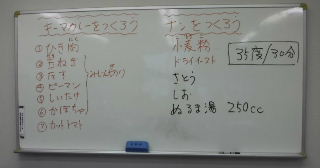 キーマカレーをつくろう
① ひき肉
② たまねぎ
③ なす
④ ピーマン
⑤ しいたけ
⑥ かぼちゃ
⑦ カットトマト
みじん切り
ナンをつくろう
小麦粉
ドライイースト
さとう
しお
ぬるま湯 250cc
35度/30分